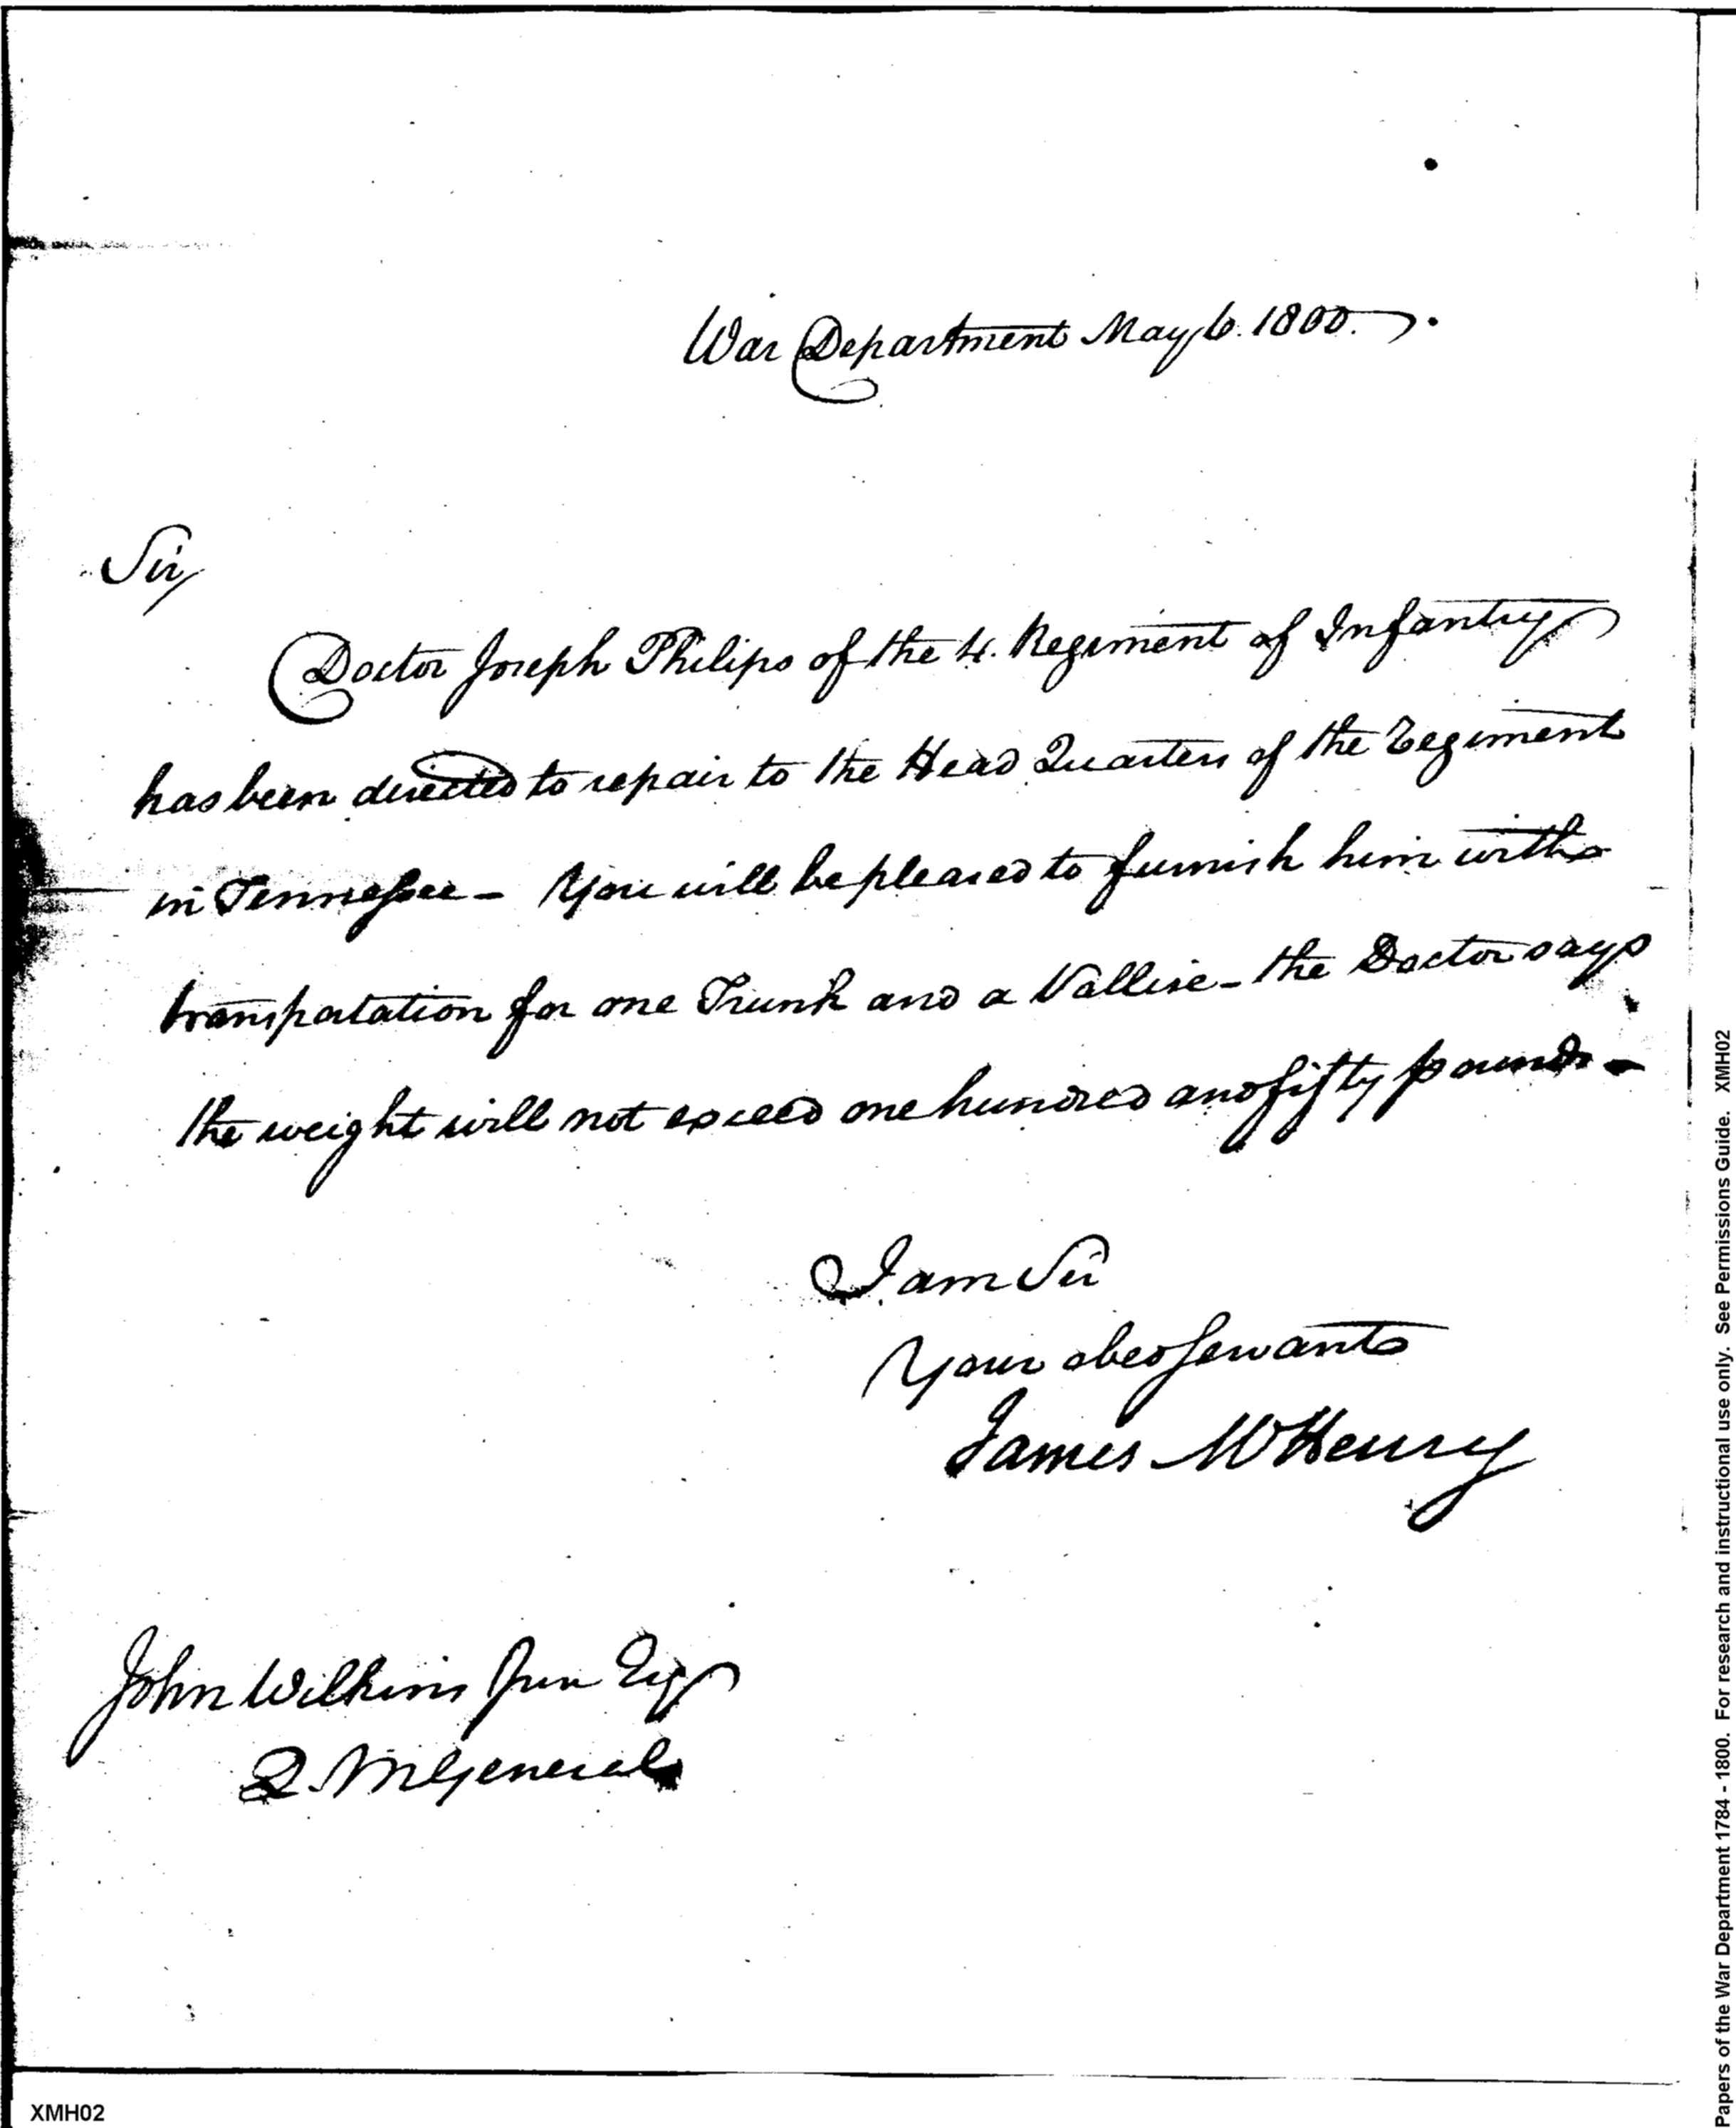 War Department May 6. 1800.
Sir
Doctor Joseph Philips of the 4. Regiment of Infantry
has been directed to repair to the Head Quarters of the Regiment
in Tennessee - You will be pleased to furnish him with
transportation for one Trunk and a Vallise - the Doctor says
the weight will not exceed one hundred and fifty pounds -
I am Sir
Your obed servant
James McHenry
John Wilkins Jun Esq
Q. M General
XMH02
Papers of the War Department 1784 - 1800. For research and instructional use only. See Permissions Guide. XMH02